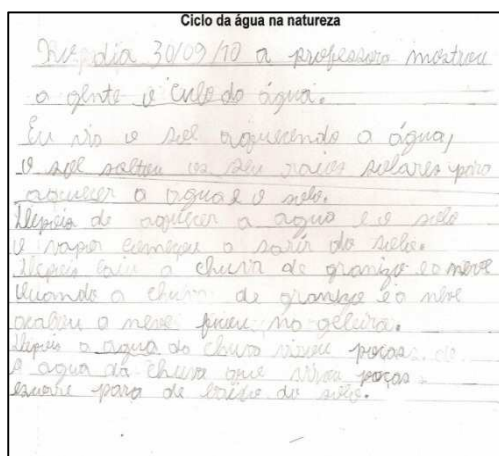 Ciclo da água na natureza
dia 30/09/10 a professora mostrou
a gente o ciclo do água.
Eu vio o sol aquecendo a água,
o sol soltou os seu raios solares para
aquecer a agua e o solo.
Depois de aquecer a agua e o solo
o vapor começou a sarir do solo.
Depois caiu a chuva de granizo e a neve
Quando a chuva de granizo e a neve
acabou a neve ficou no geleira.
Depois a agua da chuva virou poças. de
a agua da chuva que virou poças
escorre para de baixo do solo.